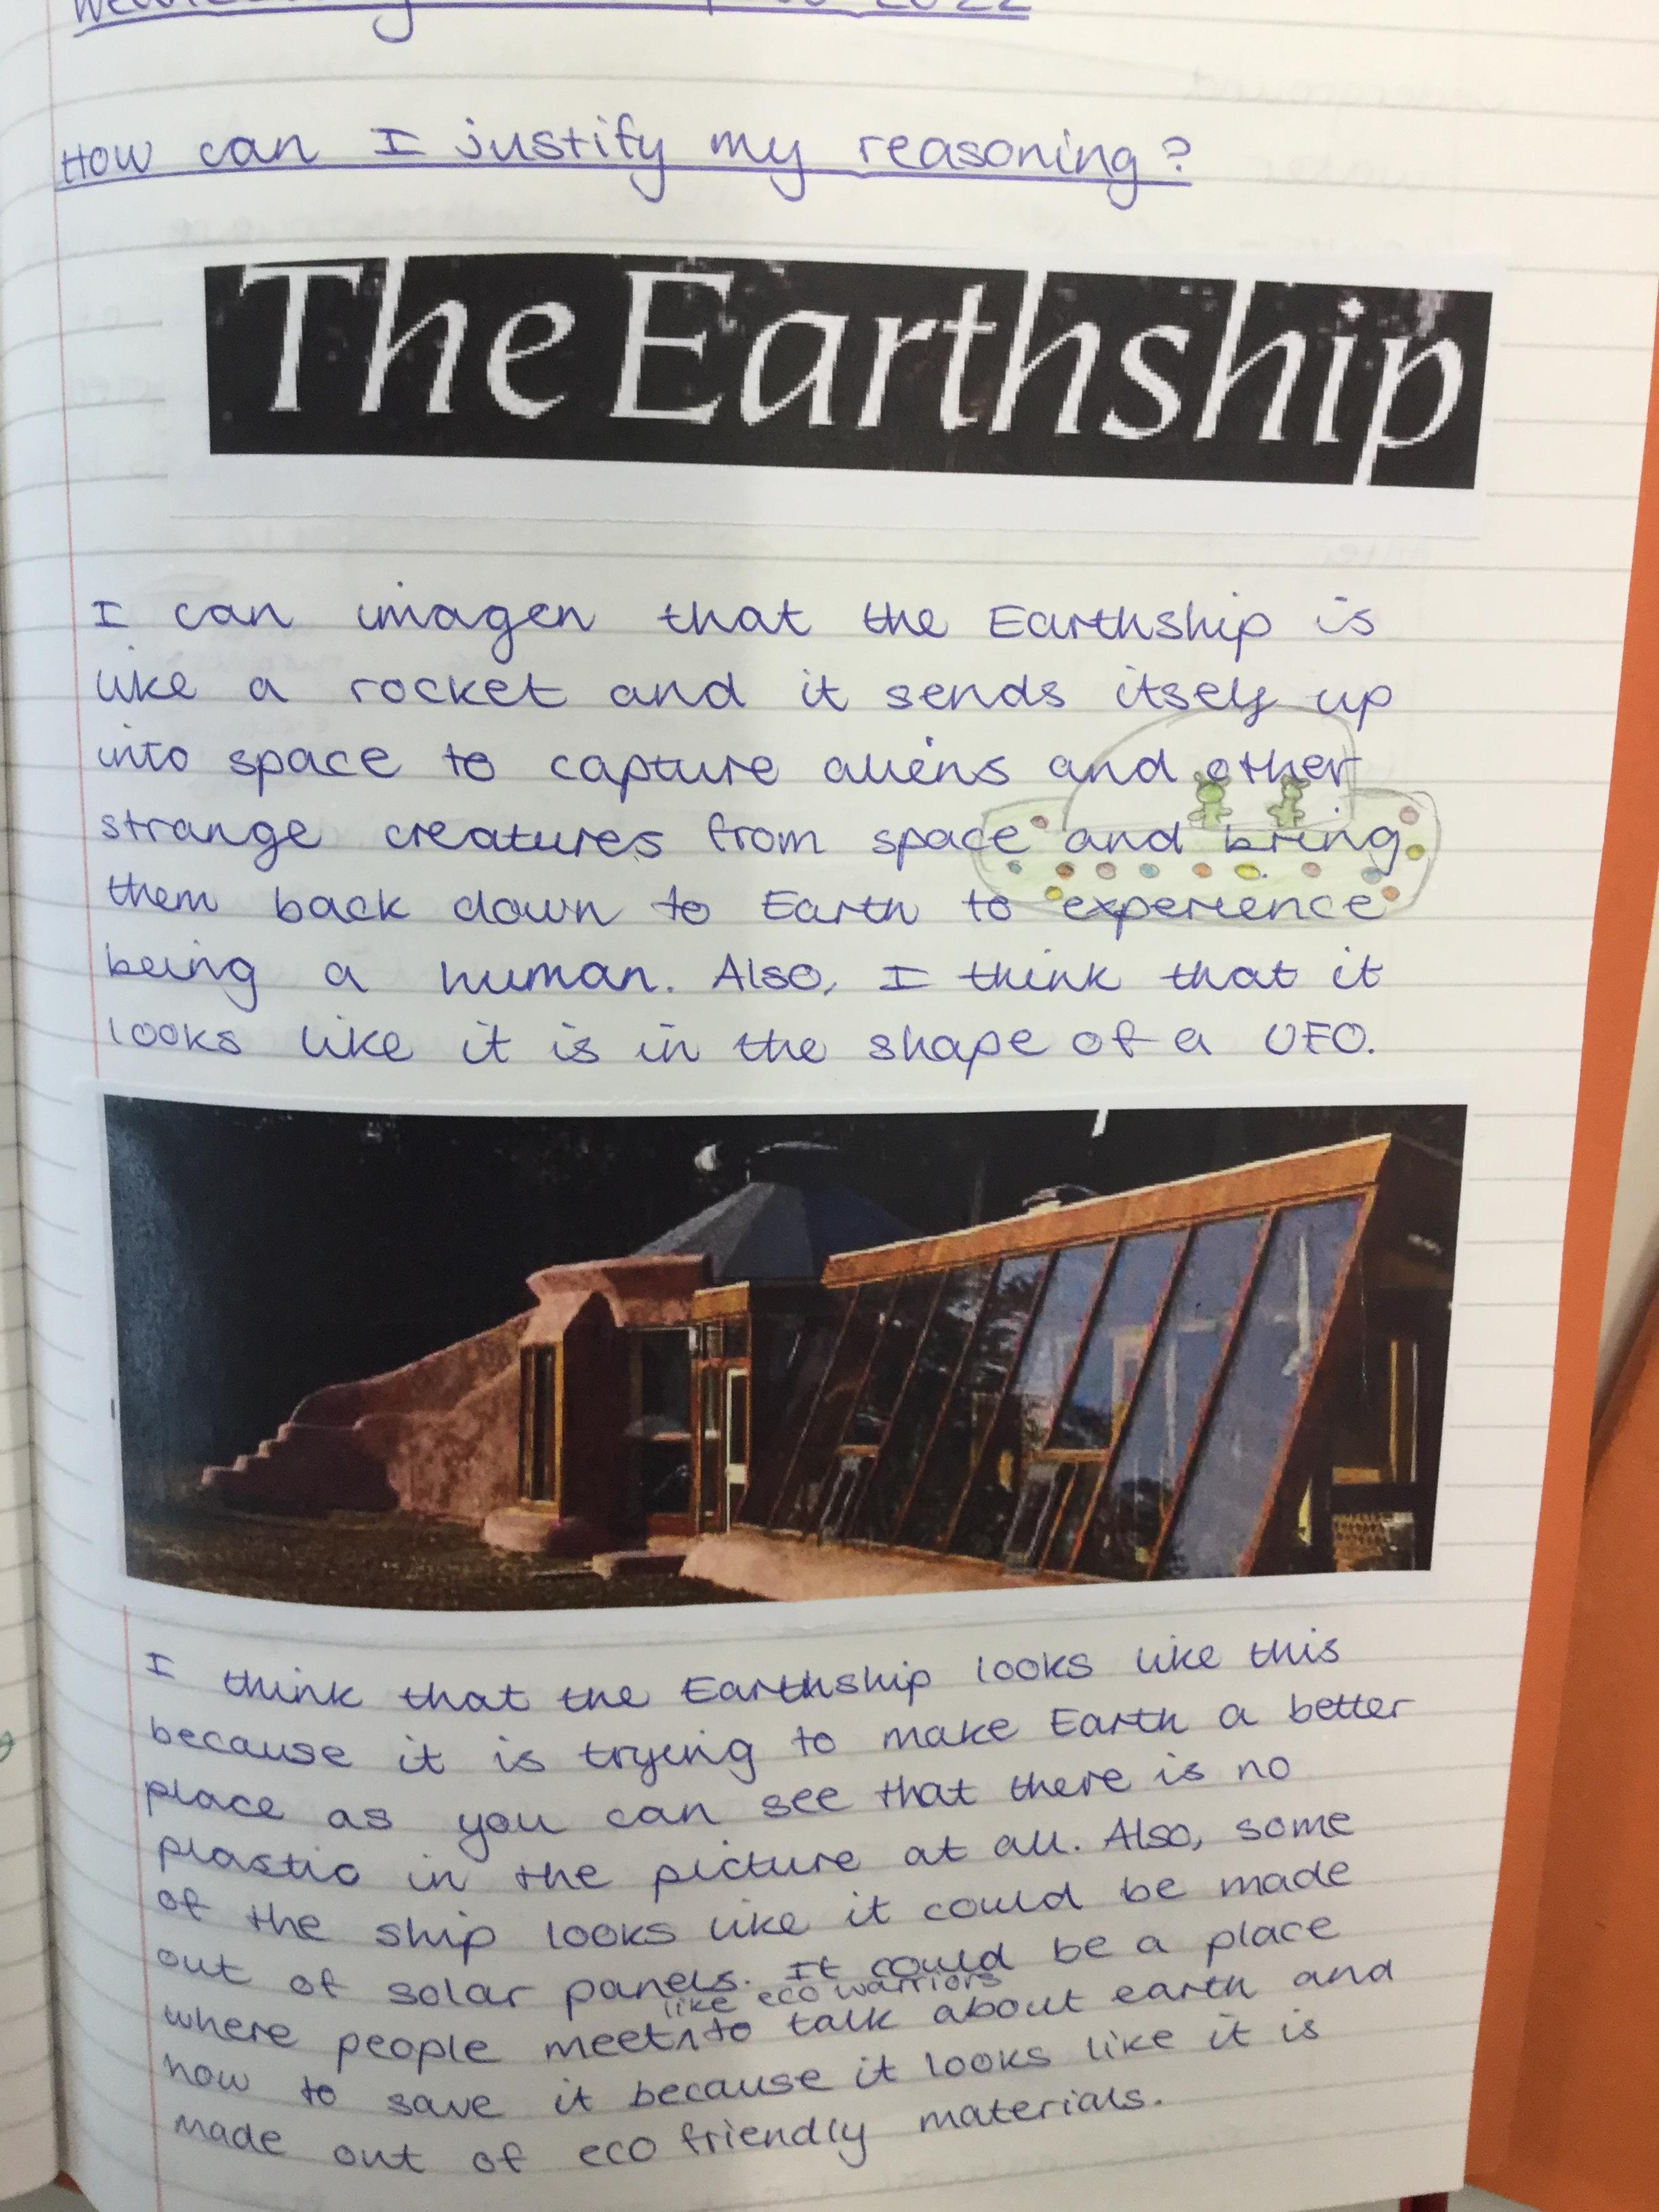 2022
How can I justify my reasoning?
The Earthship
I can imagen that the Earthship is
like a rocket and it sends itself up
into space to capture aliens and other
strange creatures from space and bring
them back down to Earth to experience
being a human. Also, I think that it
looks like it is in the shape of a UFO.
I think that the Earthship looks like this
because it is trying to make Earth a better
place as you can see that there is no
plastic in the picture at all. Also, some
of the ship looks like it could be made
out of solar panels. It could be a place
like eco warriors
where people meet to talk about earth and
how to save it because it looks like it is
made out of eco friendly materials.